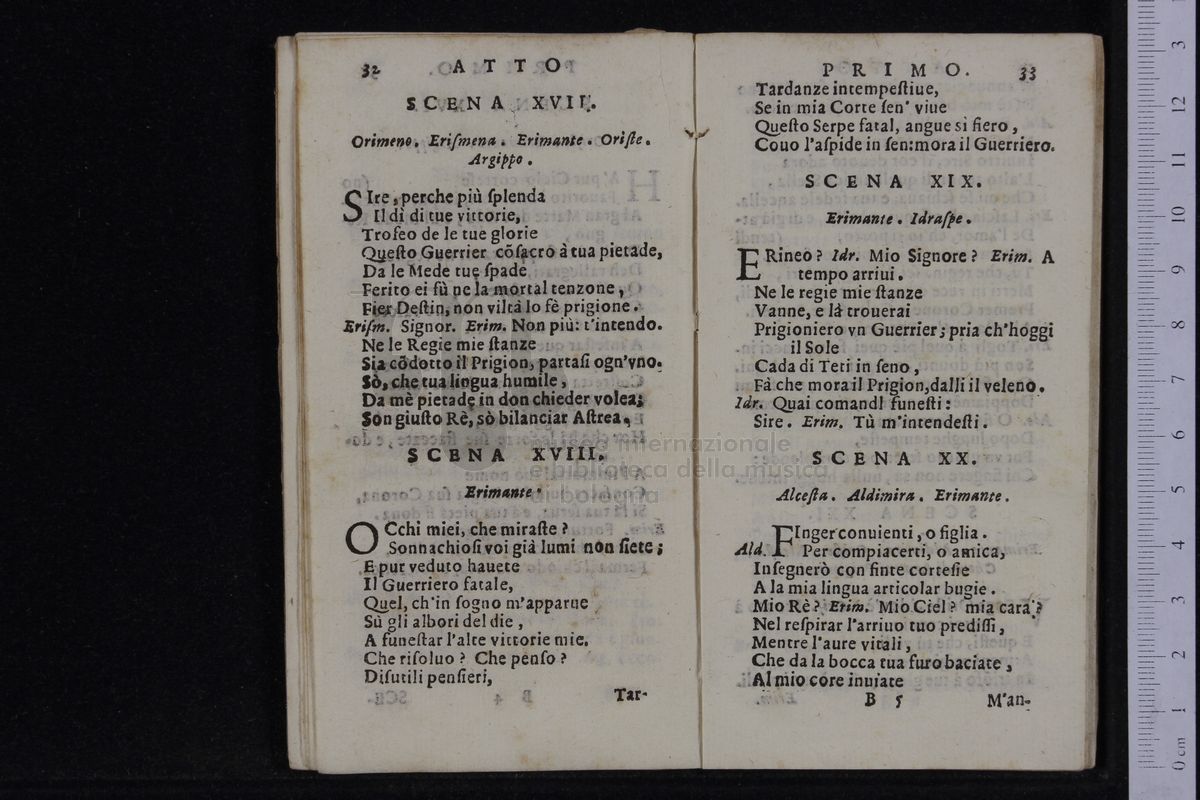 32 ATTO
SCENA XVII.
Orimeno. Eriſmena. Erimante. Oriſte.
Argippo.
SIre, perche più ſplenda
Il dì di tue vittorie,
Trofeo de le tue glorie
Queſto Guerrier cõſacro à tua pietade,
Da le Mede tue ſpade
Ferito ei fù ne la mortal tenzone,
Fier Deſtin, non viltà lo fè prigione.
Eriſm. Signor. Erim. Non più: t'intendo.
Ne le Regie mie ſtanze
Sia cõdotto il Prigion, partaſi ogn'vno.
Sò, che tua lingua humile,
Da mè pietade in don chieder volea;
Son giuſto Rè, sò bilanciar Aſtrea.
SCENA XVIII.
Erimante.
OCchi miei, che miraſte?
Sonnachioſi voi già lumi non ſiete;
E pur veduto hauete
Il Guerriero fatale,
Quel, ch'in ſogno m'apparue
Sù gli albori del die,
A funeſtar l'alte vittorie mie.
Che riſoluo? Che penſo?
Diſutili penſieri,
Tar-
PRIMO. 33
Tardanze intempeſtiue,
Se in mia Corte ſen' viue
Queſto Serpe fatal, angue sì fiero,
Couo l'aſpide in ſen: mora il Guerriero.
SCENA XIX.
Erimante. Idraſpe.
ERineo? Idr. Mio Signore? Erim. A
tempo arriui.
Ne le regie mie ſtanze
Vanne, e là trouerai
Prigioniero vn Guerrier; pria ch'hoggi
il Sole
Cada di Teti in ſeno,
Fà che mora il Prigion, dalli il veleno.
Idr. Quai comandI funeſti:
Sire. Erim. Tù m'intendeſti.
SCENA XX.
Alceſta. Aldimira. Erimante.
FInger conuienti, o figlia.
Ald. Per compiacerti, o amica,
Inſegnerò con finte corteſie
A la mia lingua articolar bugie.
Mio Rè? Erim. Mio Ciel? mia cara?
Nel reſpirar l'arriuo tuo prediſſi,
Mentre l'aure vitali,
Che da la bocca tua furo baciate,
Al mio core inuiate
B 5 M'an-
museo internazionale
e biblioteca della musica
di bologna
0 cm 1 2 3 4 5 6 7 8 9 10 11 12 13